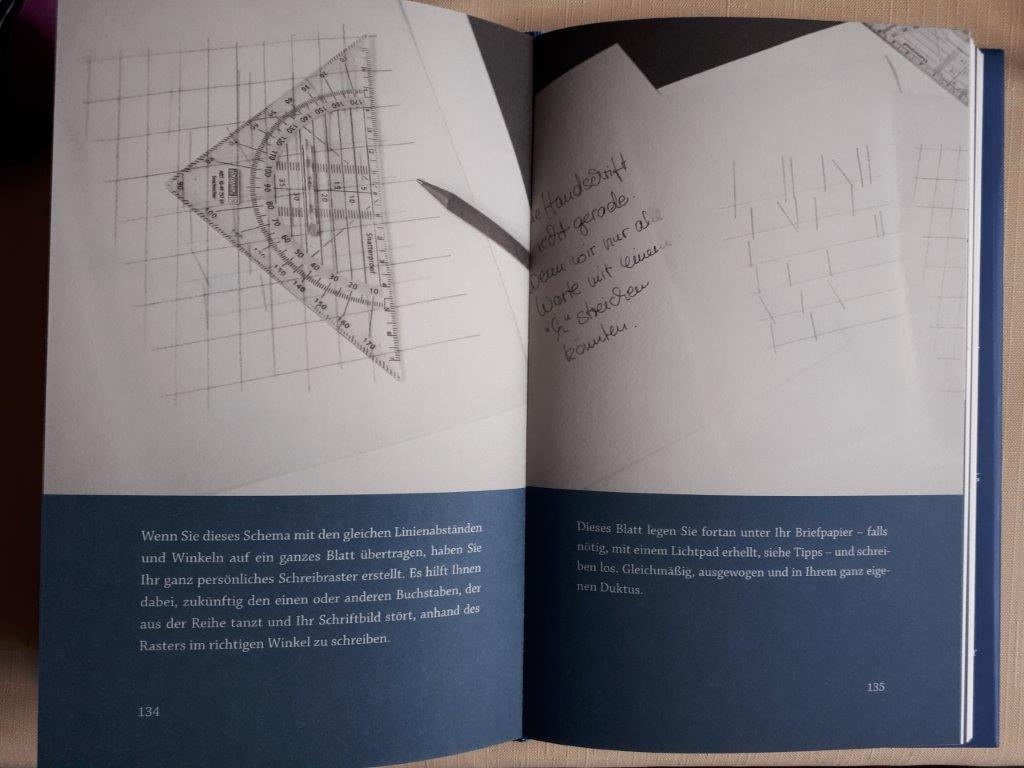 Handschrift
gerade.
wir nur alle
Worte mit einem
streichen
könnten.
Wenn Sie dieses Schema mit den gleichen Linienabständen
und Winkeln auf ein ganzes Blatt übertragen, haben Sie
Ihr ganz persönliches Schreibraster erstellt. Es hilft Ihnen
dabei, zukünftig den einen oder anderen Buchstaben, der
aus der Reihe tanzt und Ihr Schriftbild stört, anhand des
Rasters im richtigen Winkel zu schreiben.
134
Dieses Blatt legen Sie fortan unter Ihr Briefpapier – falls
nötig, mit einem Lichtpad erhellt, siehe Tipps – und schrei-
ben los. Gleichmäßig, ausgewogen und in Ihrem ganz eige-
nen Duktus.
135